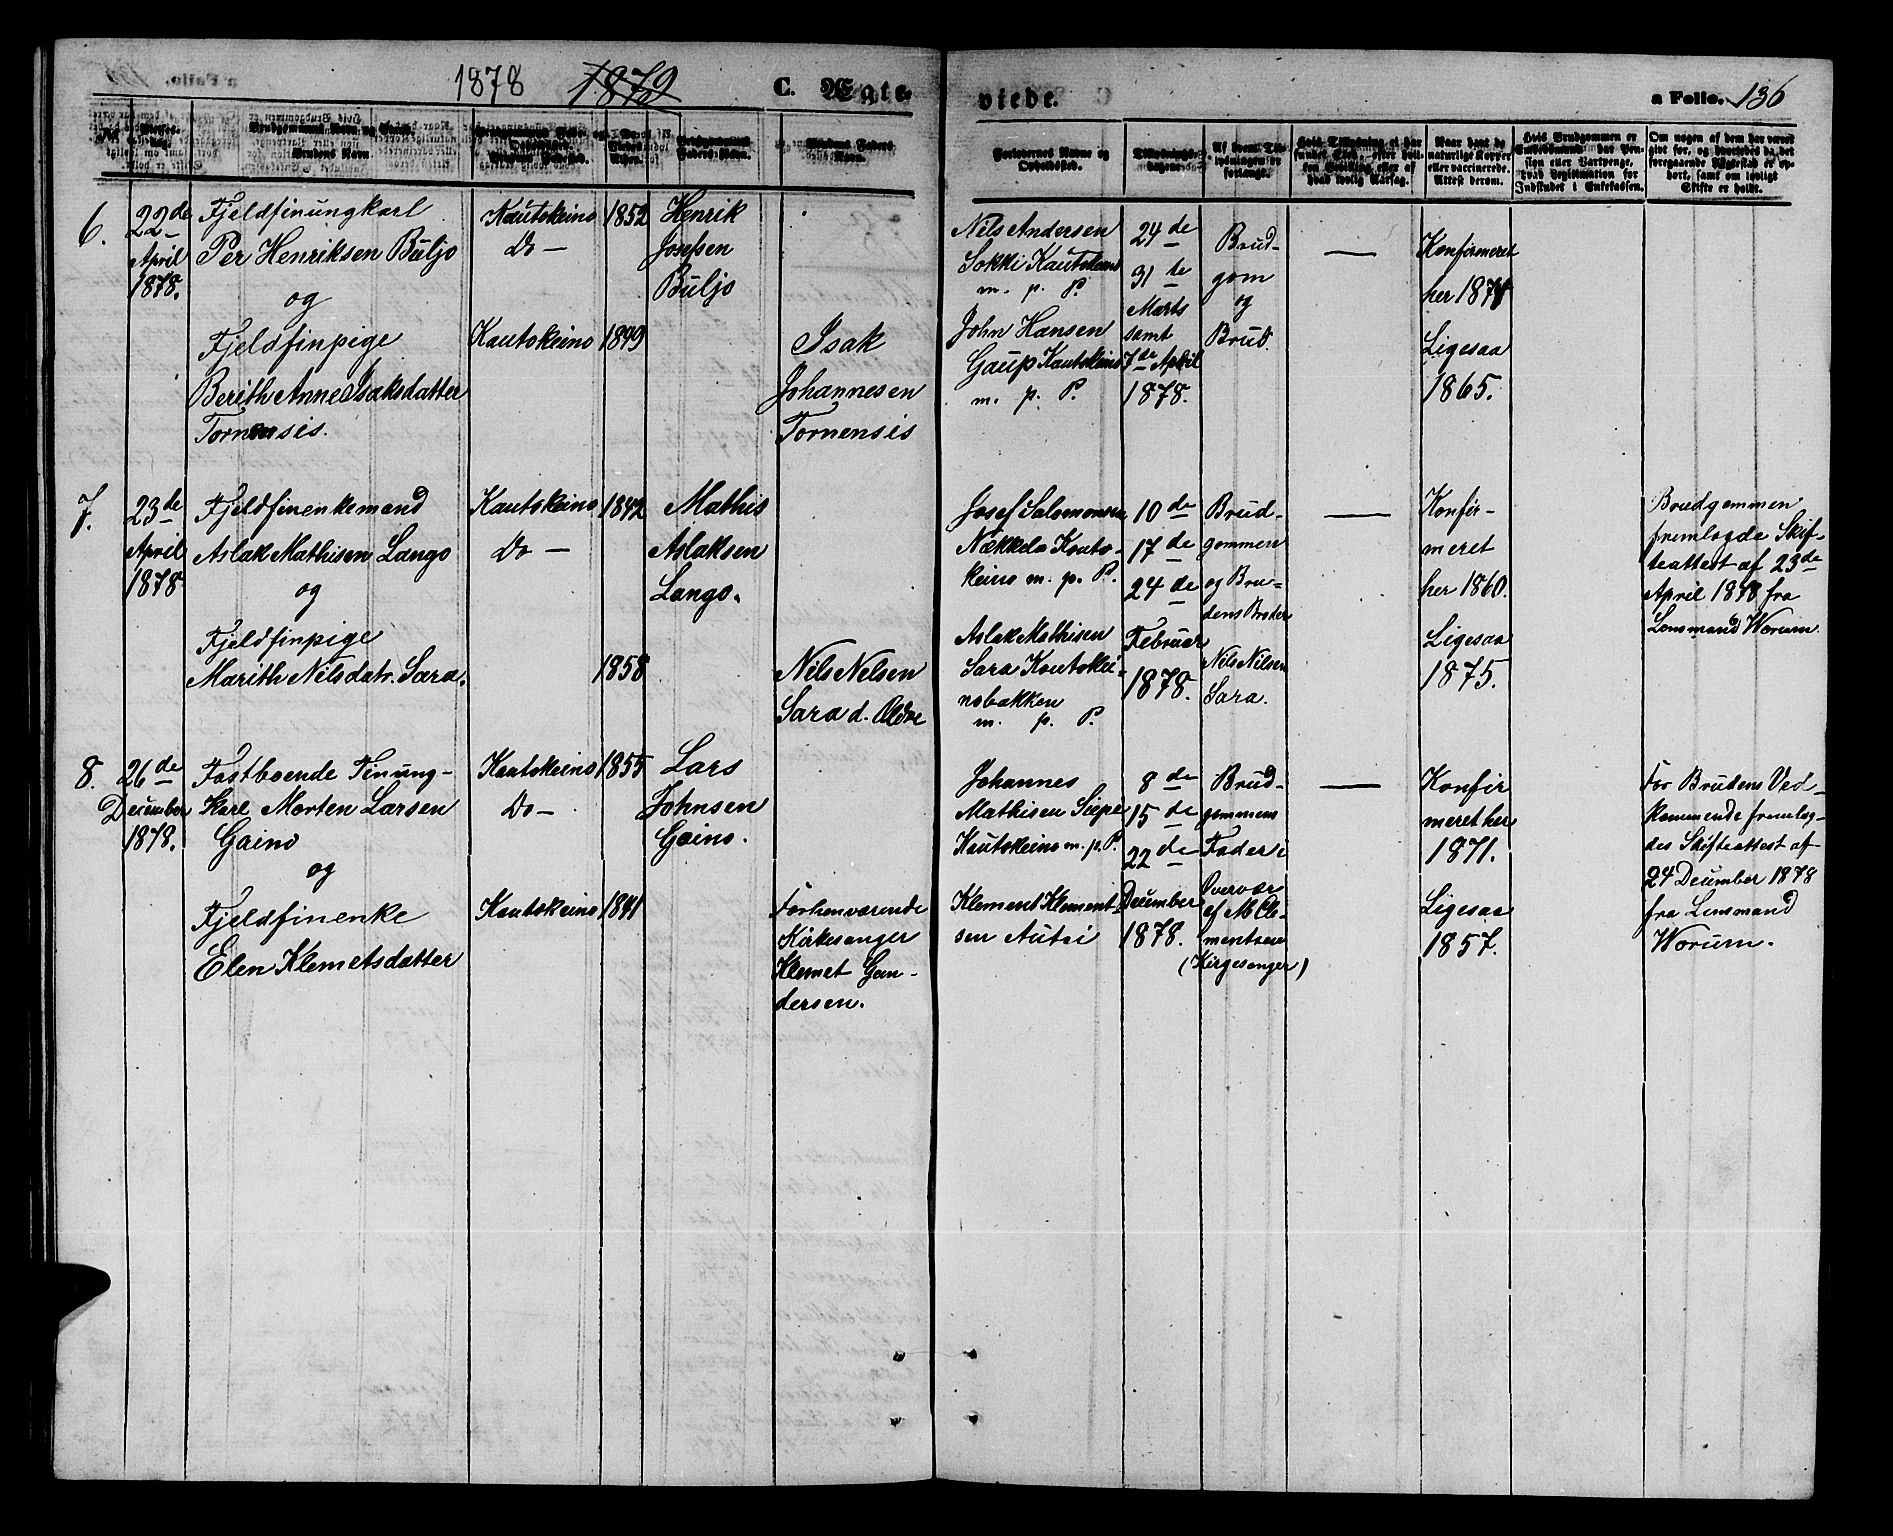 1878 1879 C. Egte-
viede. a Folio. 136
Fjeldfinungkarl
6. 22de
April
1878.
Per Henriksen Buljo
og
Fjeldfinpige
Berith Anne Isaksdatter
Tornensis.
Kautokeino
Do —
Kautokeino
1852
1849
Henrik
Josefsen
Buljo
Isak
Johannesen
Tornensis
Nils Andersen
Sokki Kautokeino
m. p. P.
John Hansen
Gaup Kautokeino
m. p. P.
24de
31te
Marts
samt
7de April
1878.
Brud-
gom
og
Brud.
—
Konfirmeret
her 1871
Ligesaa
1865.
7. 23de
April
1878
Fjeldfinenkemand
Aslak Mathisen Lango
og
Fjeldfinpige
Marith Nilsdatr. Sara.
Kautokeino
Do —
1842
1858
Mathis
Aslaksen
Lango.
Nils Nilsen
Sara d. Ældre
Josef Salomonsen
Nækkela Kauto-
keino m. p. P.
Aslak Mathisen
Sara Kautokei-
nobakken
m. p. P.
10de
17de
24de
Februar
1878.
Brud-
gommen
og Bru-
dens Broder
Nils Nilsen
Sara.
—
Konfir-
meret
her 1860.
Ligesaa
1875.
Brudgommen
fremlagde Skif-
teattest af 23de
April 1878 fra
Lensmand Worum.
8. 26de
December
1878.
Fastboende Finung-
Karl Morten Larsen
Gaino
og
Fjeldfinenke
Elen Klemetsdatter
Kautokeino
Do —
Kautokeino
1855
1841
Lars
Johnsen
Gaino.
Forhenværende
Kirkesanger
Klemet Gun-
dersen.
Johannes
Mathisen Siepe
Kautokeino m. p. P.
Klement Klement-
sen Autsi
8de
15de
22de
December
1878.
Brud-
gommens
Fader i
Overvær
af M Cle-
mentsen
(Kirgesanger)
—
Konfir
meret her
1871.
Ligesaa
1857.
For Brudens Ved-
kommende fremlag-
des Skifteattest af
24 December 1878
fra Lensmand
Worum.